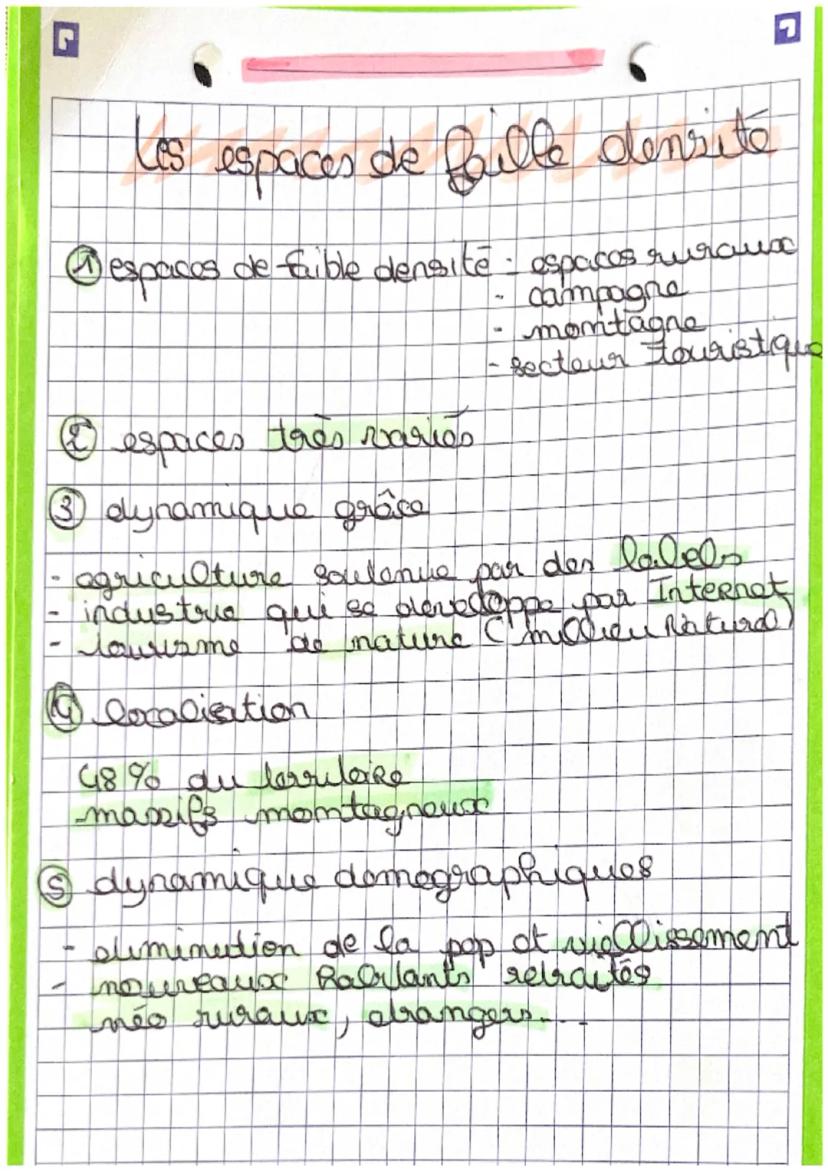 Les espaces de faible densité
① espaces de faible densité - espaces ruraux
- campagne
- montagne
- secteur touristique
② espaces très variés
③ dynamique grâce
- agriculture soutenue par des labels
- industrie qui se developpe par Internet
- tourisme de nature (milieu Naturel)
④ localisation
48 % du territoire
massifs montagneux
⑤ dynamique demographiques
- diminution de la pop et vieillissement
- nouveaux habitants retraités
néo ruraux, etrangers...